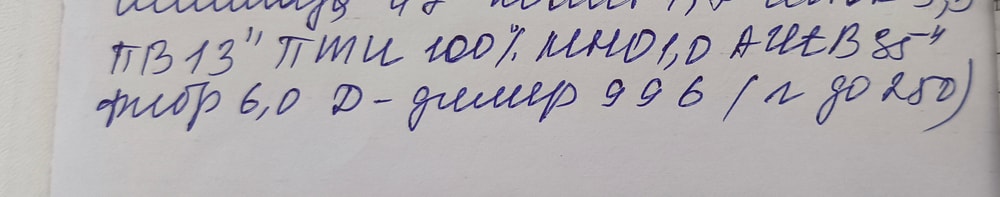 ПВ 13" ПТИ 100% МНО 1,0 АЧТВ 35"
фибр 6,0 Д-димер 996 (N до 250)